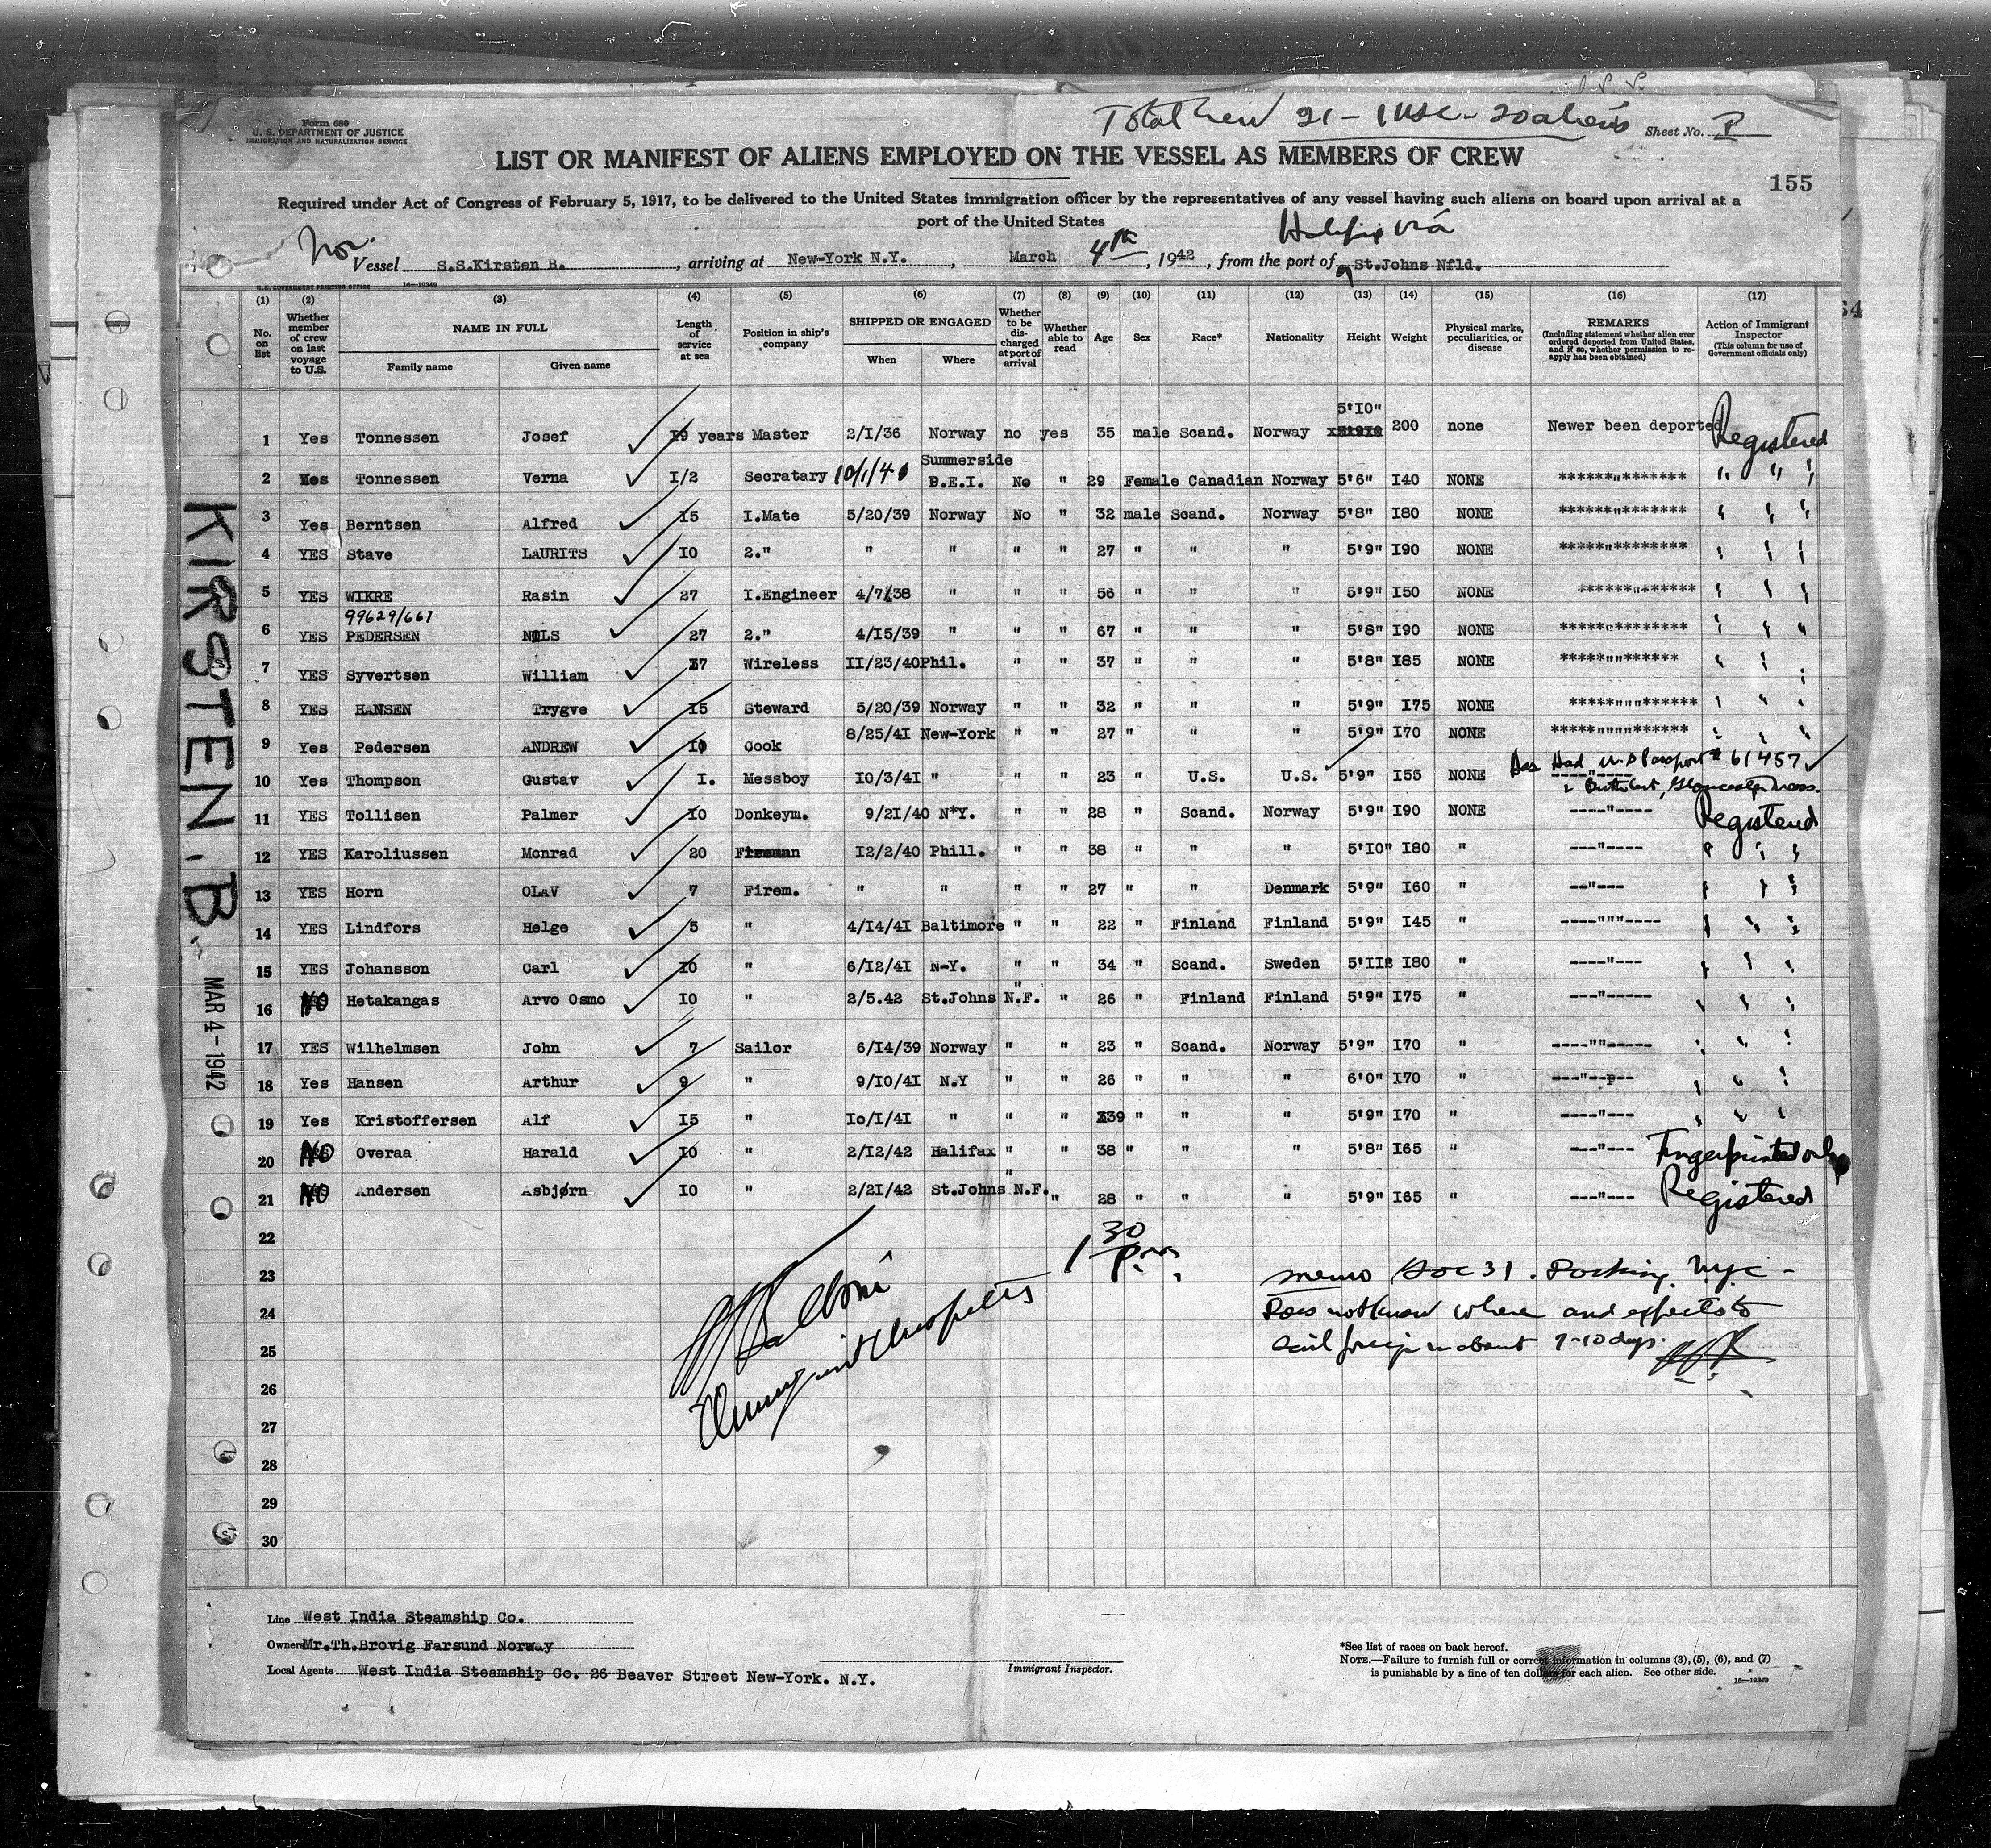 Total Crew 21 - 1 USC - 20 aliens
Form 680
U. S. DEPARTMENT OF JUSTICE
IMMIGRATION AND NATURALIZATION SERVICE
Sheet No.
LIST OR MANIFEST OF ALIENS EMPLOYED ON THE VESSEL AS MEMBERS OF CREW
155
Required under Act of Congress of February 5, 1917, to be delivered to the United States immigration officer by the representatives of any vessel having such aliens on board upon arrival at a
port of the United States
Nor. Halifax via
Vessel S.S.Kirsten B. , arriving at New-York N.Y. , March 4th , 1942 , from the port of St.Johns Nfld.
U.S. GOVERNMENT PRINTING OFFICE 16—19349
(1) (2) (3) (4) (5) (6) (7) (8) (9) (10) (11) (12) (13) (14) (15) (16) (17)
No. on list
Whether member of crew on last voyage to U.S.
NAME IN FULL
Family name Given name
Length of service at sea
Position in ship's company
SHIPPED OR ENGAGED
When Where
Whether to be discharged at port of arrival
Whether able to read
Age
Sex
Race*
Nationality
Height
Weight
Physical marks, peculiarities, or disease
REMARKS
(Including statement whether alien ever ordered deported from United States, and if so, whether permission to reapply has been obtained)
Action of Immigrant Inspector
(This column for use of Government officials only)
64
1 Yes Tonnessen Josef 19 years Master 2/I/36 Norway no yes 35 male Scand. Norway 5'I0" 200 none Newer been deported Registered
2 Tonnessen Verna I/2 Secratary 10/1/40 Summerside P.E.I. No " 29 Female Canadian Norway 5'6" I40 NONE ******"******* " " "
3 Yes Berntsen Alfred I5 I.Mate 5/20/39 Norway No " 32 male Scand. Norway 5'8" I80 NONE ******"******* " " "
4 YES Stave LAURITS I0 2." " " " " 27 " " " 5'9" I90 NONE *****"******** " " "
5 YES WIKRE Rasin 27 I.Engineer 4/7/38 " " " 56 " " " 5'9" I50 NONE ******"******* " " "
99629/661
6 YES PEDERSEN NILS 27 2." 4/15/39 " " " 67 " " " 5'8" I90 NONE *****"******** " " "
7 YES Syvertsen William 17 Wireless II/23/40 Phil. " " 37 " " " 5'8" I85 NONE *****""****** " " "
8 YES HANSEN Trygve I5 Steward 5/20/39 Norway " " 32 " " " 5'9" I75 NONE *****"""****** " " "
9 Yes Pedersen ANDREW I0 Cook 8/25/4I New-York " " 27 " " " 5'9" I70 NONE *****""""****** " " "
10 Yes Thompson Gustav I. Messboy I0/3/4I " " " 23 " U.S. U.S. 5'9" I55 NONE Has Had U.S Passport # 61457
& Birth Cert, Gloucester Mass.
11 YES Tollisen Palmer I0 Donkeym. 9/2I/40 N*Y. " " 28 " Scand. Norway 5'9" I90 NONE ----"---- Registered
12 YES Karoliussen Monrad 20 Fireman I2/2/40 Phill. " " 38 " " " 5'I0" I80 " ---"---- " " "
13 YES Horn OLAV 7 Firem. " " " " 27 " " Denmark 5'9" I60 " --"--- " " "
14 YES Lindfors Helge 5 " 4/I4/4I Baltimore " " 22 " Finland Finland 5'9" I45 " ----"""---- " " "
15 YES Johansson Carl I0 " 6/I2/4I N-Y. " " 34 " Scand. Sweden 5'II" I80 " ----"--- " " "
16 NO Hetakangas Arvo Osmo I0 " 2/5.42 St.Johns N.F. " " 26 " Finland Finland 5'9" I75 " ---"----- " " "
17 YES Wilhelmsen John 7 Sailor 6/I4/39 Norway " " 23 " Scand. Norway 5'9" I70 " ----""----- " " "
18 Yes Hansen Arthur 9 " 9/I0/4I N.Y " " 26 " " " 6'0" I70 " ---"--p-- " " "
19 Yes Kristoffersen Alf I5 " Io/I/4I " " " 39 " " " 5'9" I70 " ----"--- " " "
20 NO Overaa Harald I0 " 2/I2/42 Halifax " " 38 " " " 5'8" I65 " ---"--- Fingerprinted only
21 NO Andersen Asbjørn I0 " 2/2I/42 St.Johns N.F. " " 28 " " " 5'9" I65 " ---"--- Registered
22
23
24
25
26
27
28
29
30
1 30 pm
Immigrant Inspector
memo Doc 31. Docking NYC -
Does not know where and expects to
sail foreign in about 7-10 days.
KIRSTEN. B.
MAR 4 - 1942
Line West India Steamship Co.
Owners Mr.Th.Brovig Farsund Norway
Local Agents West India Steamship Co. 26 Beaver Street New-York. N.Y.
Immigrant Inspector.
*See list of races on back hereof.
NOTE.—Failure to furnish full or correct information in columns (3), (5), (6), and (7)
is punishable by a fine of ten dollars for each alien. See other side.
16—19349